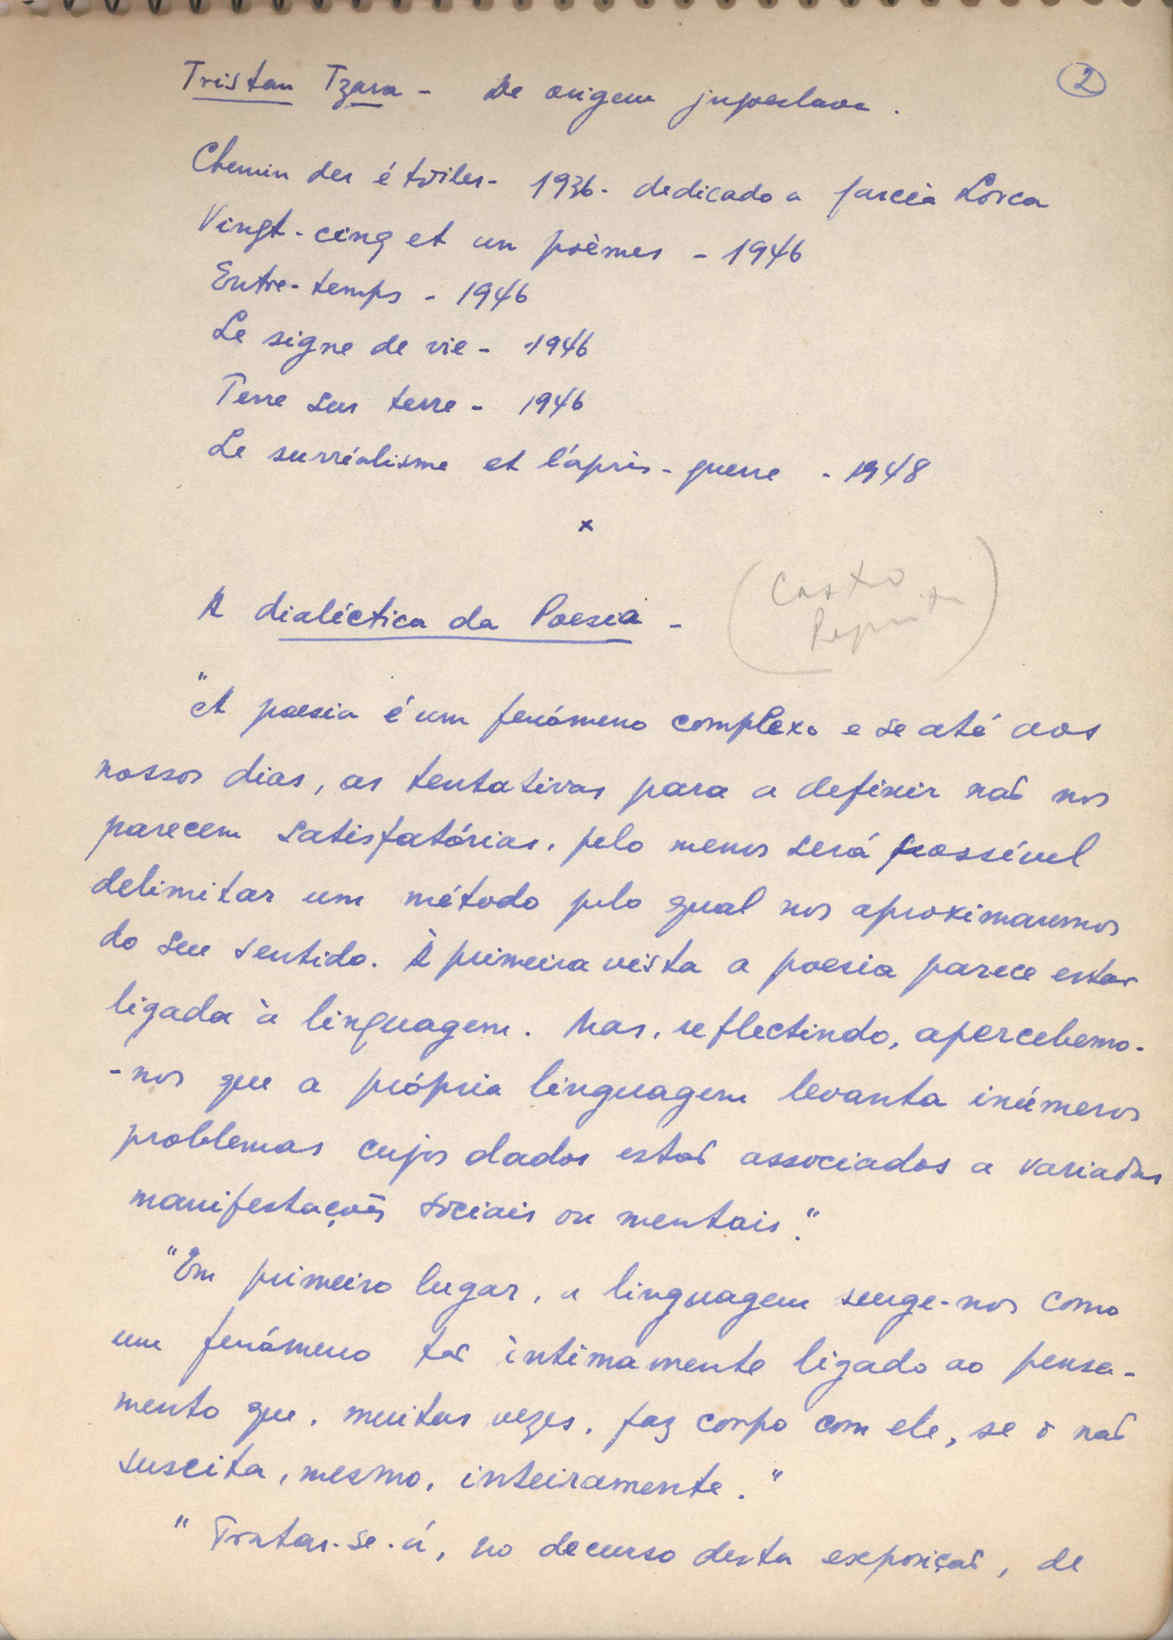 Tristan Tzara - De origem jugoslava.
2
Chemin des étoiles - 1936 - dedicado a Garcia Lorca
Vingt-cinq et un poèmes - 1946
Entre-temps - 1946
Le signe de vie - 1946
Terre sur terre - 1946
Le surréalisme et l'après-guerre - 1948
x
A dialéctica da Poesia -
"A poesia é um fenómeno complexo e se até aos
nossos dias, as tentativas para a definir não nos
parecem satisfatórias, pelo menos será possível
delimitar um método pelo qual nos aproximaremos
do seu sentido. À primeira vista a poesia parece estar
ligada à linguagem. Mas, reflectindo, apercebemo-
-nos que a própria linguagem levanta inúmeros
problemas cujos dados estão associados a variadas
manifestações sociais ou mentais."
"Em primeiro lugar, a linguagem surge-nos como
um fenómeno tão intimamente ligado ao pensa-
mento que, muitas vezes, faz corpo com ele, se o não
suscita, mesmo, inteiramente."
"Tratar-se-á, no decurso desta exposição, de